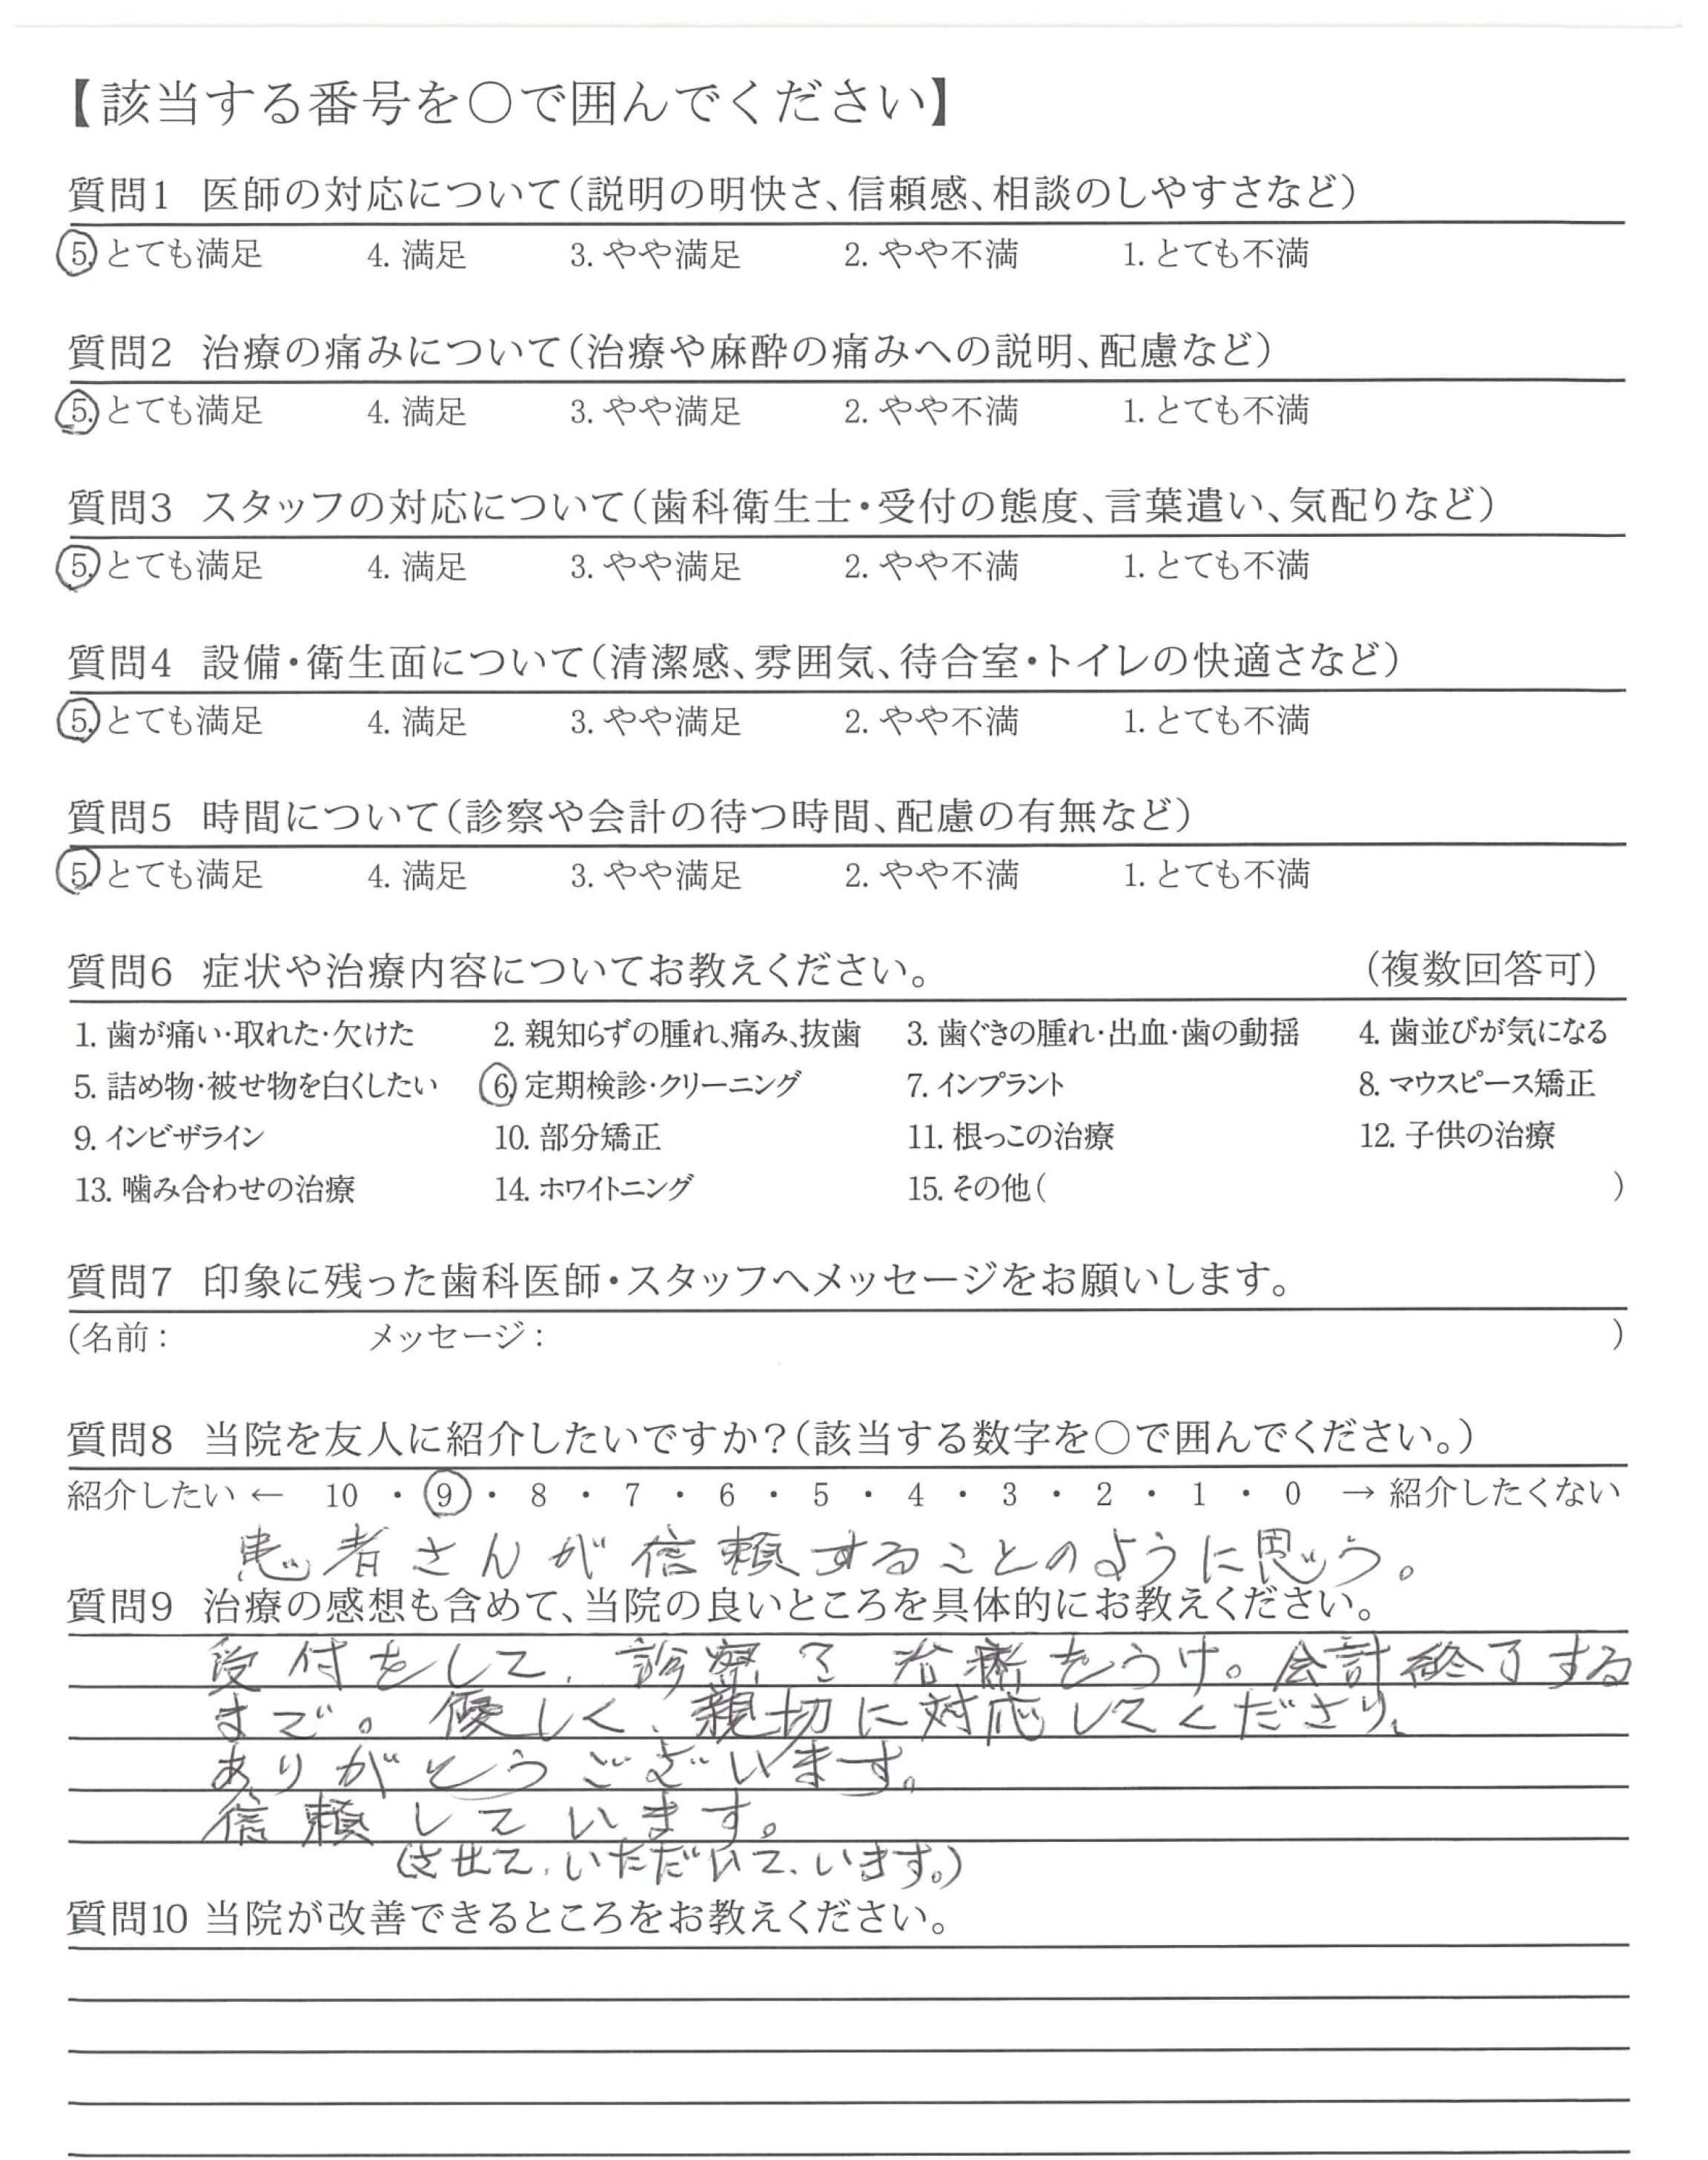 【該当する番号を〇で囲んでください】
質問1 医師の対応について(説明の明快さ、信頼感、相談のしやすさなど)
5. とても満足 4. 満足 3. やや満足 2. やや不満 1. とても不満
質問2 治療の痛みについて(治療や麻酔の痛みへの説明、配慮など)
5. とても満足 4. 満足 3. やや満足 2. やや不満 1. とても不満
質問3 スタッフの対応について(歯科衛生士・受付の態度、言葉遣い、気配りなど)
5. とても満足 4. 満足 3. やや満足 2. やや不満 1. とても不満
質問4 設備・衛生面について(清潔感、雰囲気、待合室・トイレの快適さなど)
5. とても満足 4. 満足 3. やや満足 2. やや不満 1. とても不満
質問5 時間について(診察や会計の待つ時間、配慮の有無など)
5. とても満足 4. 満足 3. やや満足 2. やや不満 1. とても不満
質問6 症状や治療内容についてお教えください。 (複数回答可)
1. 歯が痛い・取れた・欠けた 2. 親知らずの腫れ、痛み、抜歯 3. 歯ぐきの腫れ・出血・歯の動揺 4. 歯並びが気になる
5. 詰め物・被せ物を白くしたい 6. 定期検診・クリーニング 7. インプラント 8. マウスピース矯正
9. インビザライン 10. 部分矯正 11. 根っこの治療 12. 子供の治療
13. 噛み合わせの治療 14. ホワイトニング 15. その他( )
質問7 印象に残った歯科医師・スタッフへメッセージをお願いします。
(名前: メッセージ: )
質問8 当院を友人に紹介したいですか?(該当する数字を〇で囲んでください。)
紹介したい ← 10 ・ 9 ・ 8 ・ 7 ・ 6 ・ 5 ・ 4 ・ 3 ・ 2 ・ 1 ・ 0 → 紹介したくない
患者さんが信頼することのように思う。
質問9 治療の感想も含めて、当院の良いところを具体的にお教えください。
受付をして、診察 治療をうけ。会計終了する
まで。優しく、親切に対応してくださり、
ありがとうございます。
信頼しています。
(させて、いただいて、います。)
質問10 当院が改善できるところをお教えください。